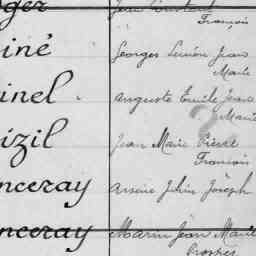 ger Jean Constant
François
iné Georges Lucien Jean
Marie
inel. Auguste Emile Jean
Marie
izil Jean Marie Pierre
François
nceray Arsène Julien Joseph
nceray Marin Jean Marie
Prosper